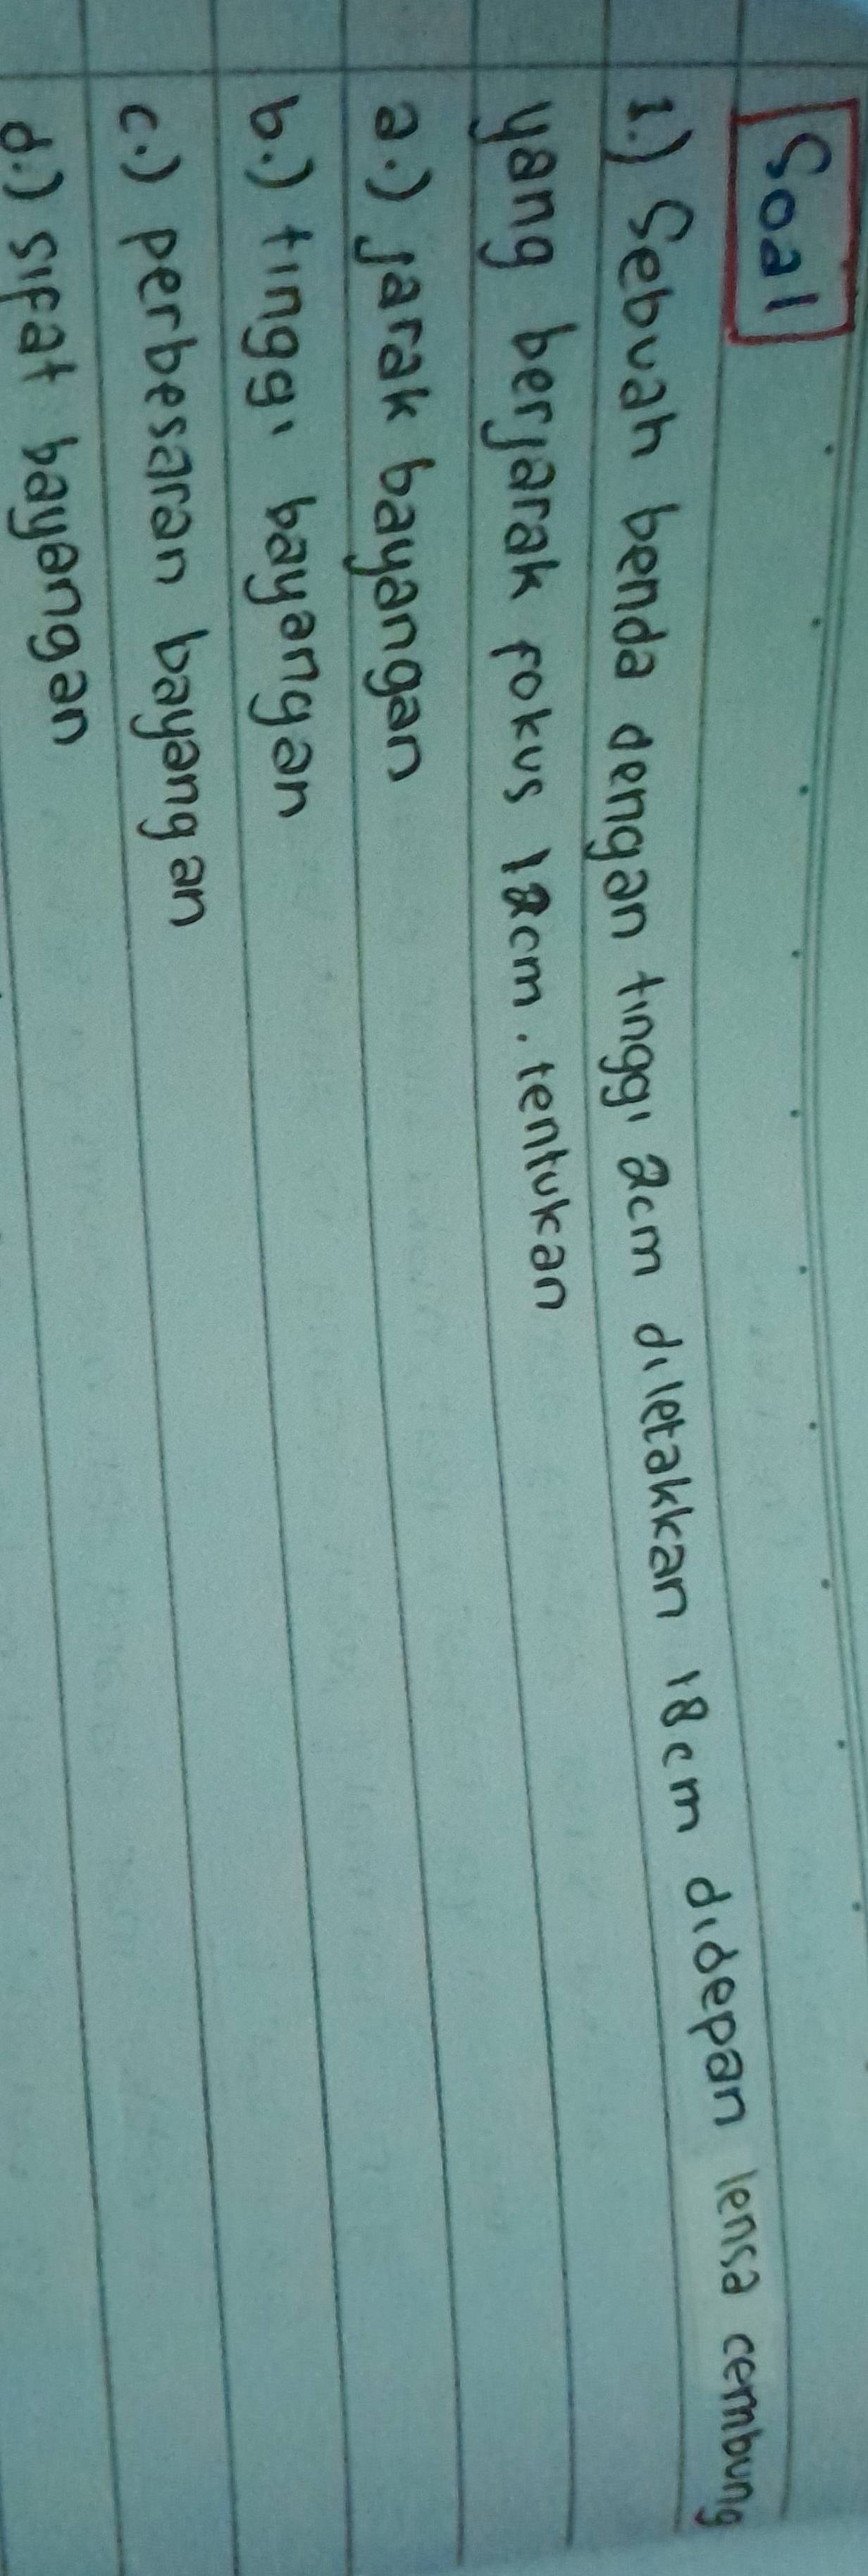 Soal
1.) Sebuah benda dengan tinggi 2cm diletakkan 18cm didepan lensa cembung
yang berjarak fokus 12cm. tentukan
a.) jarak bayangan
b.) tinggi bayangan
c.) perbesaran bayangan
d.) sifat bayangan